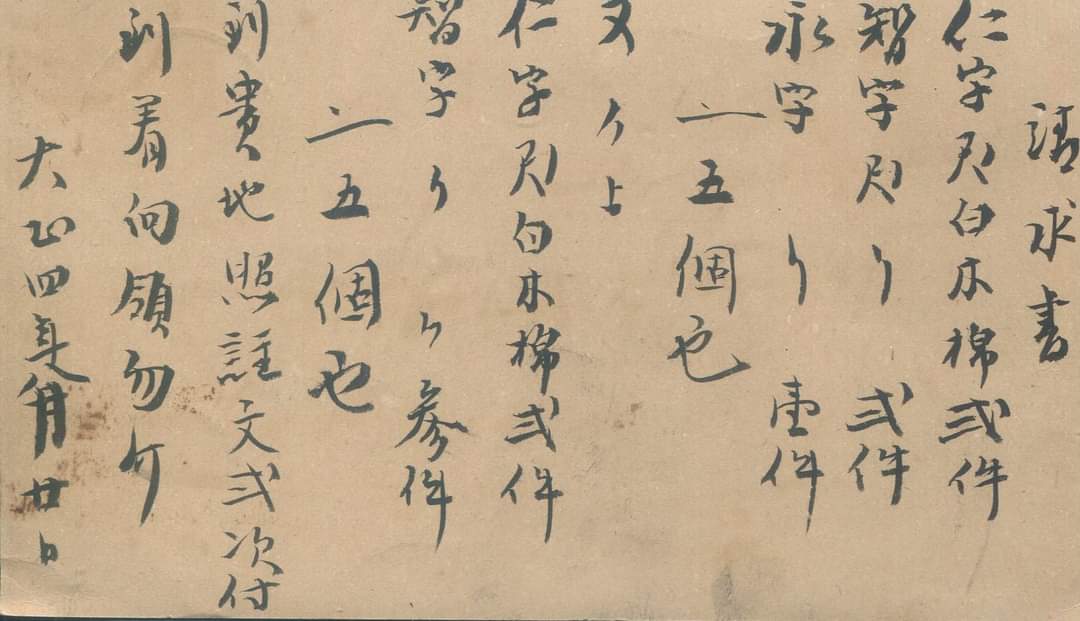 請求書
仁字尺白木棉弍件
智字尺〃 弍件
永字 〃 壹件
一五個也
又〃上
仁字尺白木棉弍件
智字〃〃参件
一五個也
到貴地照註文弍次付
到着向領勿
大正四年月廿日